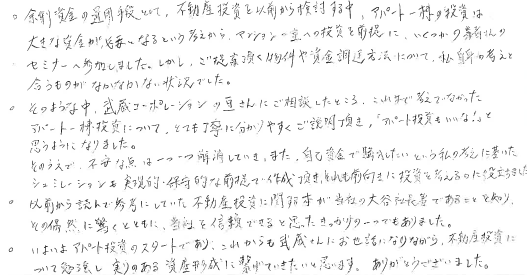 ○ 余剰資金の運用手段として、不動産投資を以前から検討する中、アパート一棟の投資は
大きな資金が必要になるという考えから、マンション一室への投資を前提に、いくつかの業者さんの
セミナーへ参加しました。しかし、ご提案頂く物件や資金調達方法について、私自身の考えと
合うものがなかなかない状況でした。
○ そのような中、武蔵コーポレーションの さんにご相談したところ、これまで考えてなかった
アパート一棟投資について、とても丁寧に分かりやすくご説明頂き、「アパート投資もいいな!」と
思うようになりました。
そのうえで、不安な点は一つ一つ解消していき、また、自己資金で購入したいという私の考えに基いた
シュミレーションも実現的・保守的な前提で作成頂き、それも前向きに投資を考えるのに役立ちました
○ 以前から読んで参考にしていた不動産投資に関する本が当社の大谷社長著であることを知り、
その偶然に驚くとともに、当社を信頼できると思ったきっかけの一つでもありました。
○ いよいよアパート投資のスタートであり、これからも武蔵さんにお世話になりながら、不動産投資に
ついて勉強し実りのある資産形成に繋げていきたいと思います。ありがとうございました。